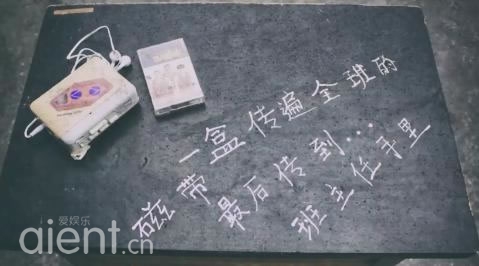 一盒传遍全班的
磁带最后传到...
班主任手里
爱娱乐
aient.cn